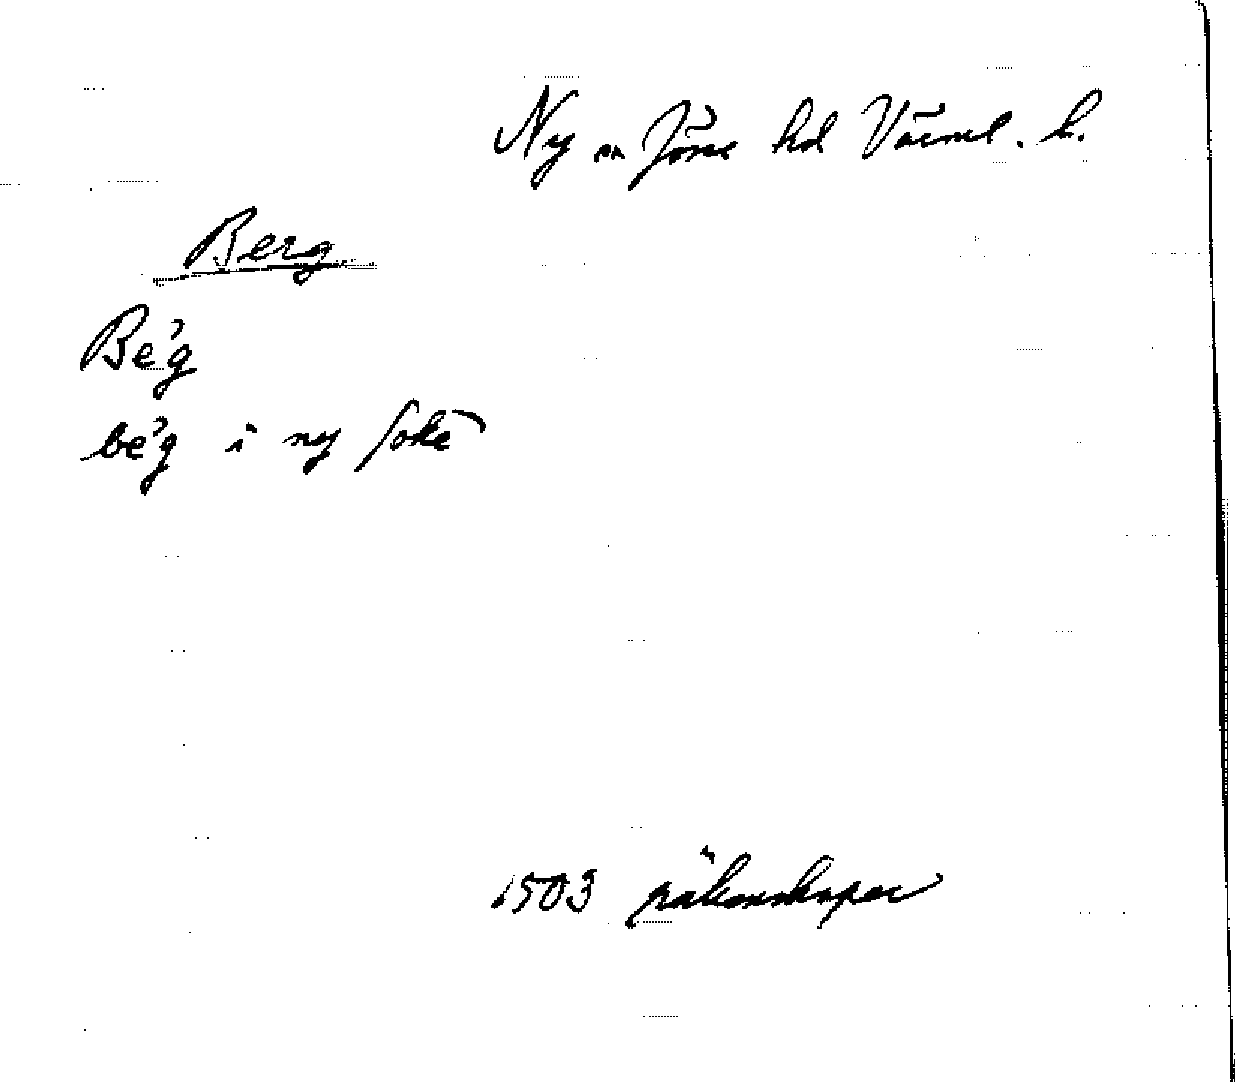 Ny sn Jösse hd Värml. l.
Berg
Be'g
be'g i ny soke
1503 räkenskaper